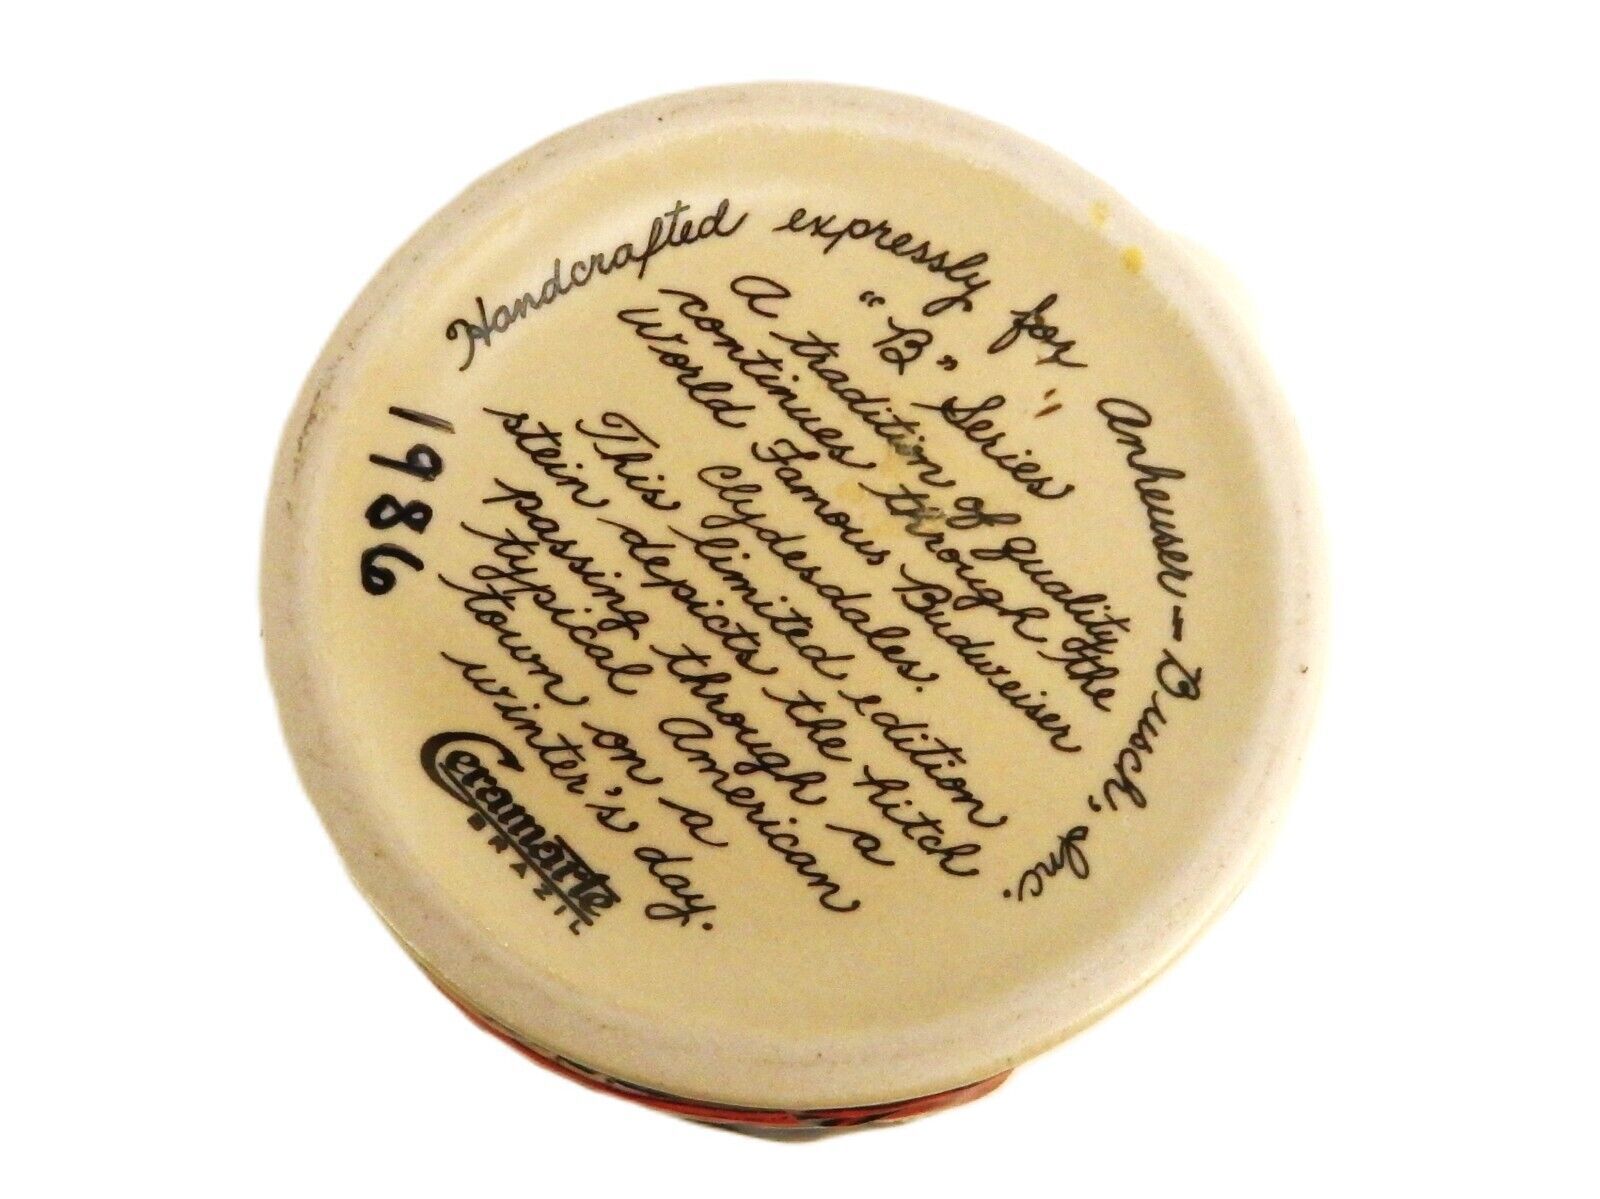 Handcrafted expressly for Anheuser-Busch, Inc.
"B" Series
A tradition of quality
continues through the
World Famous Budweiser
Clydesdales.
This limited edition
stein depicts the hitch
passing through a
typical American
town on a
winter's day.
Ceramarte
BRAZIL
1986